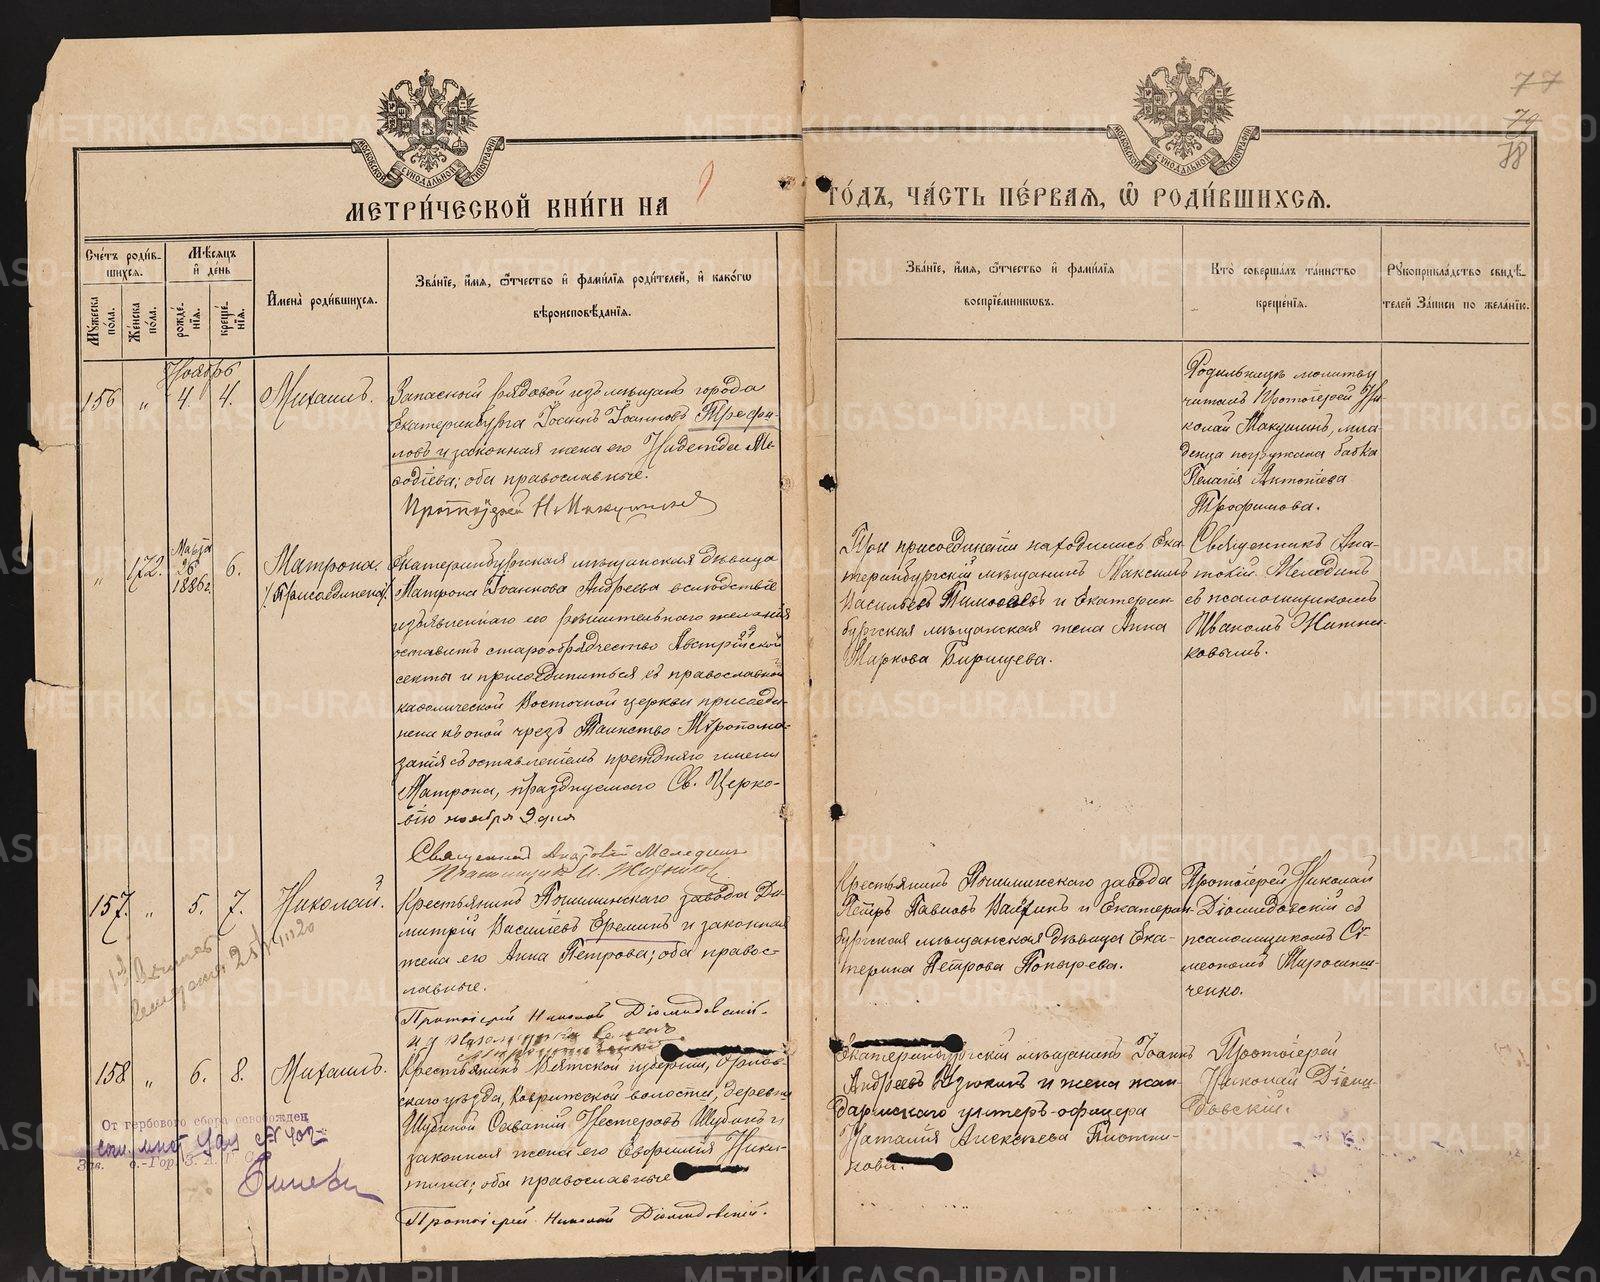 77
79
88
МЕТРИ́ЧЕСКОЙ КНИ́ГИ НА
ГО́ДЪ, ЧА́СТЬ ПЕ́РВАѦ, Ѽ РОДИ́ВШИХСѦ.
МОСКОВСКОЙ СѴНОДАЛЬНОЙ ТИПОГРАФІИ
МОСКОВСКОЙ СѴНОДАЛЬНОЙ ТИПОГРАФІИ
Сче́тъ роди́в-
шихсѧ.
Мꙋ́жеска по́ла.
Же́нска по́ла.
Мѣ́сѧцъ
и҆ день
рожде́-
нїѧ.
креще́-
нїѧ.
И҆мена̀ роди́вшихсѧ.
Зва́нїе, и҆́мѧ, ѻ҆́тчество и҆ фами́лїѧ роди́телей, и҆ како́гѡ
вѣроисповѣ́данїѧ.
Зва́нїе, и҆́мѧ, ѻ҆́тчество и҆ фами́лїѧ
воспрїе́мникѡвъ.
Кто̀ соверша́лъ та́инство
креще́нїѧ.
Рꙋкоприкла́дство свидѣ́-
телей За́писи по жела́нїю.
Ноябрь
156 „ 4. 4. Михаилъ.
Запасной рядовой изъ мѣщанъ города
Екатеринбурга Іоаннъ Іоанновъ Трефи-
ловъ и законная жена его Надежда Ме-
ѳодіева; оба православные.
Протоіерей Н. Макушинъ
Родильницѣ молитву
читалъ Протоіерей Ни-
колай Макушинъ, мла-
денца погружала бабка
Пелагія Антоніева
Трофимова.
„ 172. Марта 26 1886г. 6. Матрона
/Присоединена/.
Екатеринбургская мѣщанская дѣвица
Матрона Іоаннова Андреева вслѣдствіе
изъявленнаго ею рѣшительнаго желанія
оставить старообрядчество Австрійской
секты и присоединиться къ православной
каѳолической Восточной церкви присоеди-
нена къ оной чрезъ Таинство Мѵропома-
занія съ оставленіемъ прежняго имени
Матрона, празднуемаго Св. Церко-
вію ноября 9 дня
Священникъ Анатолій Мелединъ
Псаломщикъ И. Житниковъ
При присоединеніи находились Ека-
теринбургскій мѣщанинъ Максимъ
Васильевъ Тимоѳеевъ и Екатерин-
бургская мѣщанская жена Анна
Маркова Бирищева.
Священникъ Ана-
толій Мелединъ
съ псаломщикомъ
Иваномъ Житни-
ковымъ.
157. „ 5. 7. Николай.
Крестьянинъ Пышминскаго завода Ди-
митрій Василіевъ Ереминъ и законная
жена его Анна Петрова; оба правос-
лавные.
Протоіерей Николай Діомидовскій.
Крестьянинъ Пышминскаго завода
Петръ Павловъ и Екатерин-
бургская мѣщанская дѣвица Ека-
терина Петрова Попырева.
Протоіерей Николай
Діомидовскій съ
псаломщикомъ Си-
меономъ Мирошни-
ченко.
158 „ 6. 8. Михаилъ.
Крестьянинъ Вятской губерніи, Орлов-
скаго уѣзда, волости, деревни
Шубиной Савватій Несторовъ Шубинъ и
законная жена его Евфимія Ники-
тина; оба православные
Протоіерей Николай Діомидовскій.
Екатеринбургскій мѣщанинъ Іоаннъ
Андреевъ и жена жан-
дармскаго унтеръ-офицера
Наталія Алексѣева Плотни-
кова.
Протоіерей
Николай Діоми-
довскій.
От гербового сбора освобожден
№ 402